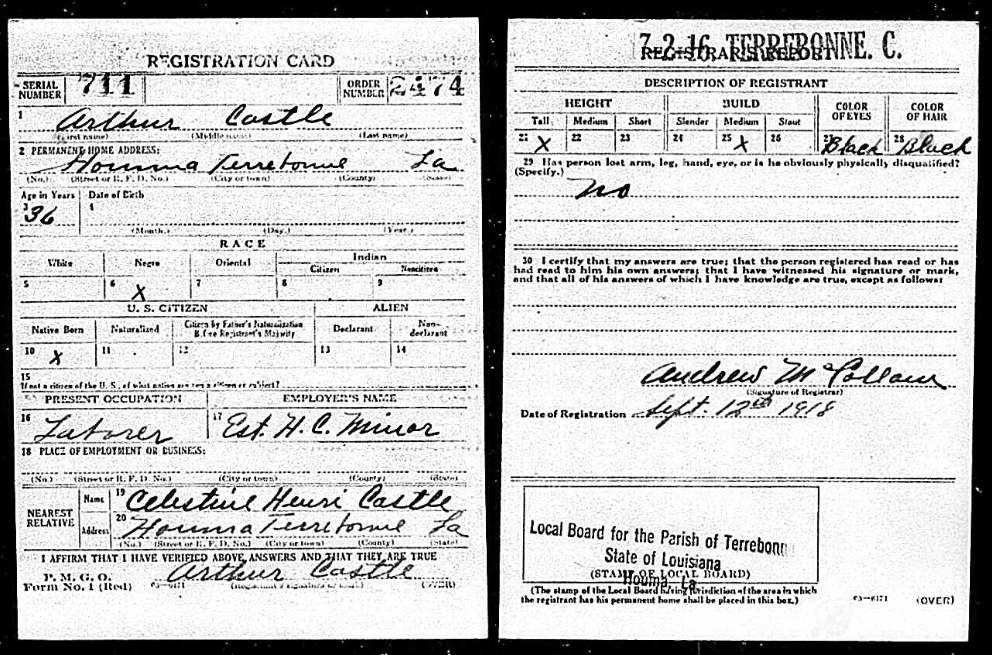 REGISTRATION CARD
SERIAL NUMBER 711 ORDER NUMBER 2474
1 Arthur Castle
(First name) (Middle name) (Last name)
2 PERMANENT HOME ADDRESS:
Houma Terrebonne La
(No.) (Street or R. F. D. No.) (City or town) (County) (State)
Age in Years Date of Birth
3 36 4
(Month.) (Day.) (Year.)
RACE
White Negro Oriental Indian
Citizen Noncitizen
5 6 X 7 8 9
U. S. CITIZEN ALIEN
Native Born Naturalized Citizen by Father's Naturalization Before Registrant's Majority Declarant Non-declarant
10 X 11 12 13 14
15
If not a citizen of the U. S., of what nation are you a citizen or subject?
PRESENT OCCUPATION EMPLOYER'S NAME
16 Laborer 17 Est. H. C. Minor
18 PLACE OF EMPLOYMENT OR BUSINESS:
(No.) (Street or R. F. D. No.) (City or town) (County) (State)
NEAREST RELATIVE Name 19 Celestine Henri Castle
Address 20 Houma Terrebonne La
(No.) (Street or R. F. D. No.) (City or town) (County) (State)
I AFFIRM THAT I HAVE VERIFIED ABOVE ANSWERS AND THAT THEY ARE TRUE
P. M. G. O.
Form No. 1 (Red) Arthur Castle
(Registrant's signature or mark) (OVER)
7-2-16 TERREBONNE. C.
REGISTRAR'S REPORT
DESCRIPTION OF REGISTRANT
HEIGHT BUILD COLOR OF EYES COLOR OF HAIR
Tall Medium Short Slender Medium Stout
21 X 22 23 24 25 X 26 27 Black 28 Black
29 Has person lost arm, leg, hand, eye, or is he obviously physically disqualified?
(Specify.)
no
30 I certify that my answers are true; that the person registered has read or has
had read to him his own answers; that I have witnessed his signature or mark,
and that all of his answers of which I have knowledge are true, except as follows:
Andrew McCollam
(Signature of Registrar)
Date of Registration Sept. 12th 1918
Local Board for the Parish of Terrebonn
State of Louisiana
(STAMP OF LOCAL BOARD)
Houma, La
(The stamp of the Local Board having jurisdiction of the area in which
the registrant has his permanent home shall be placed in this box.)
03-6171 (OVER)